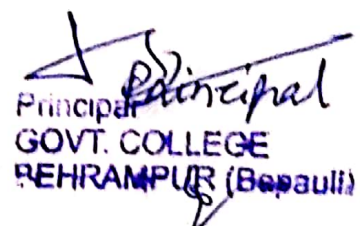 Principal
Principal
GOVT. COLLEGE
BEHRAMPUR (Bapauli)